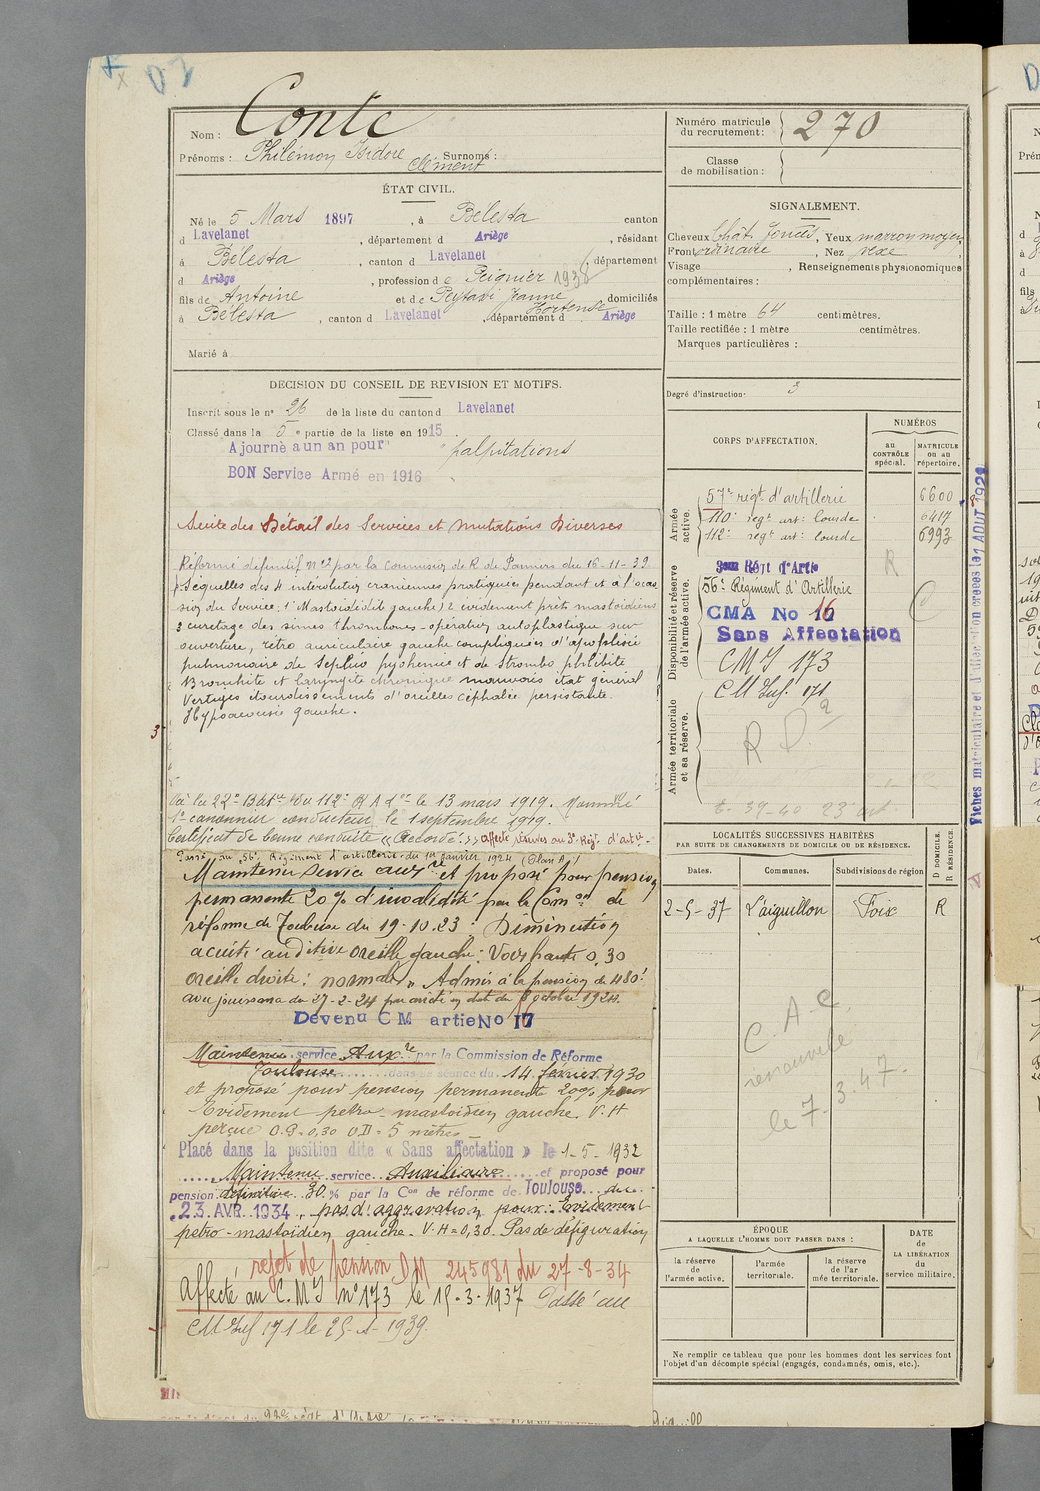 Nom : Conte
Prénoms : Philémon Isidore Surnoms :
Clément
ÉTAT CIVIL.
Né le 5 Mars 1897, à Bélesta canton
d Lavelanet, département d Ariège, résidant
à Bélesta, canton d Lavelanet, département
d Ariège, profession de Peignier 1938
fils de Antoine et de Peytavi Jeanne domiciliés
Hortense
à Bélesta, canton d Lavelanet, département d Ariège
Marié à
DECISION DU CONSEIL DE REVISION ET MOTIFS.
Inscrit sous le n° 26 de la liste du canton d Lavelanet
Classé dans la 5e partie de la liste en 1915.
Ajourné a un an pour "palpitations
BON Service Armé en 1916
Suite des Détail des Services et Mutations Diverses
Réformé définitif n° 2 par la Commission de R de Pamiers du 16-11-39
Séquelles des 4 interventions craniennes pratiquées pendant et à l'occa
sion du Service: 1° Mastoïdite gauche) 2 évidement pétro mastoïdiens
3 curetage des sinus thrombones - opération autoplastique sur
ouverture, rétro auriculaire gauche compliquées d'apoplexie
pulmonaire de Septico pyohemie et de Strombo phlébite
Bronchite et laryngite chronique mauvais état général
Vertiges étourdissements d'oreilles céphalée persistante.
Hypoacousie gauche.
3
à la 22e Batie du 112e R A L le 13 mars 1919. Nommé
1er canonnier conducteur le 1 septembre 1919.
Certificat de bonne conduite « Accordé. » Affecté réserves au 3e Régt d'artie.
Passé au 56e Régiment d'artillerie du 1er janvier 1924 (Plan A)
Maintenu service auxre et proposé pour pension
permanente 20% d'invalidité par la Comon de
réforme de Toulouse du 19-10-23 : Diminution
acuité auditive oreille gauche: Voix haute 0,30
oreille droite: normale. Admis à la pension de 480f
avec jouissance du 27-2-24 par arrêté en date du 8 octobre 1924.
Devenu CM artie No 17
Maintenu service Auxre par la Commission de Réforme
Toulouse dans sa séance du 14 février 1930
et proposé pour pension permanente 20% pour
Evidement petro-mastoïdien gauche. V.H
perçue O.G=0,30 O.D=5 mètres
Placé dans la position dite « Sans affectation » le 1-5-1932
Maintenu service Auxiliaire et proposé pour
pension définitive 30% par la Con de réforme de Toulouse du
23 AVR 1934, pas d'aggravation pour: Evidement
petro-mastoïdien gauche. V.H=0,30. Pas de défiguration
rejet de pension DM 245981 du 27-8-34
Affecté au C.M.I n°173 le 15-3-1937 Passé au
CM Inf 171 le 25-1-1939.
Numéro matricule
du recrutement : 270
Classe
de mobilisation :
SIGNALEMENT.
Cheveux Chât. foncés, Yeux marron moyen,
Front ordinaire, Nez vexe,
Visage , Renseignements physionomiques
complémentaires :
Taille : 1 mètre 64 centimètres.
Taille rectifiée : 1 mètre centimètres.
Marques particulières :
Degré d'instruction: 3
CORPS D'AFFECTATION.
NUMÉROS
au
CONTRÔLE
spécial.
MATRICULE
ou au
répertoire.
Armée
active.
57e régt d'artillerie 6600
110e regt art: lourde 6417
112e regt art: lourde 6993
Disponibilité et réserve
de l'armée active.
3eme Régt d'Artie R
56e Régiment d'Artillerie
CMA No 16 C
Sans Affectation
CMI 173
CM Inf. 171
Armée territoriale
et sa réserve.
R D 2
LOCALITÉS SUCCESSIVES HABITÉES
PAR SUITE DE CHANGEMENTS DE DOMICILE OU DE RÉSIDENCE.
D DOMICILE.
R RÉSIDENCE.
Dates. Communes. Subdivisions de région
2-5-37 L'aiguillon Foix R
C. A. C.
renouvelé
le 7.3.47.
ÉPOQUE
A LAQUELLE L'HOMME DOIT PASSER DANS :
la réserve
de
l'armée active.
l'armée
territoriale.
la réserve
de l'ar
mée territoriale.
DATE
de
LA LIBÉRATION
du
service militaire.
Ne remplir ce tableau que pour les hommes dont les services font
l'objet d'un décompte spécial (engagés, condamnés, omis, etc.).